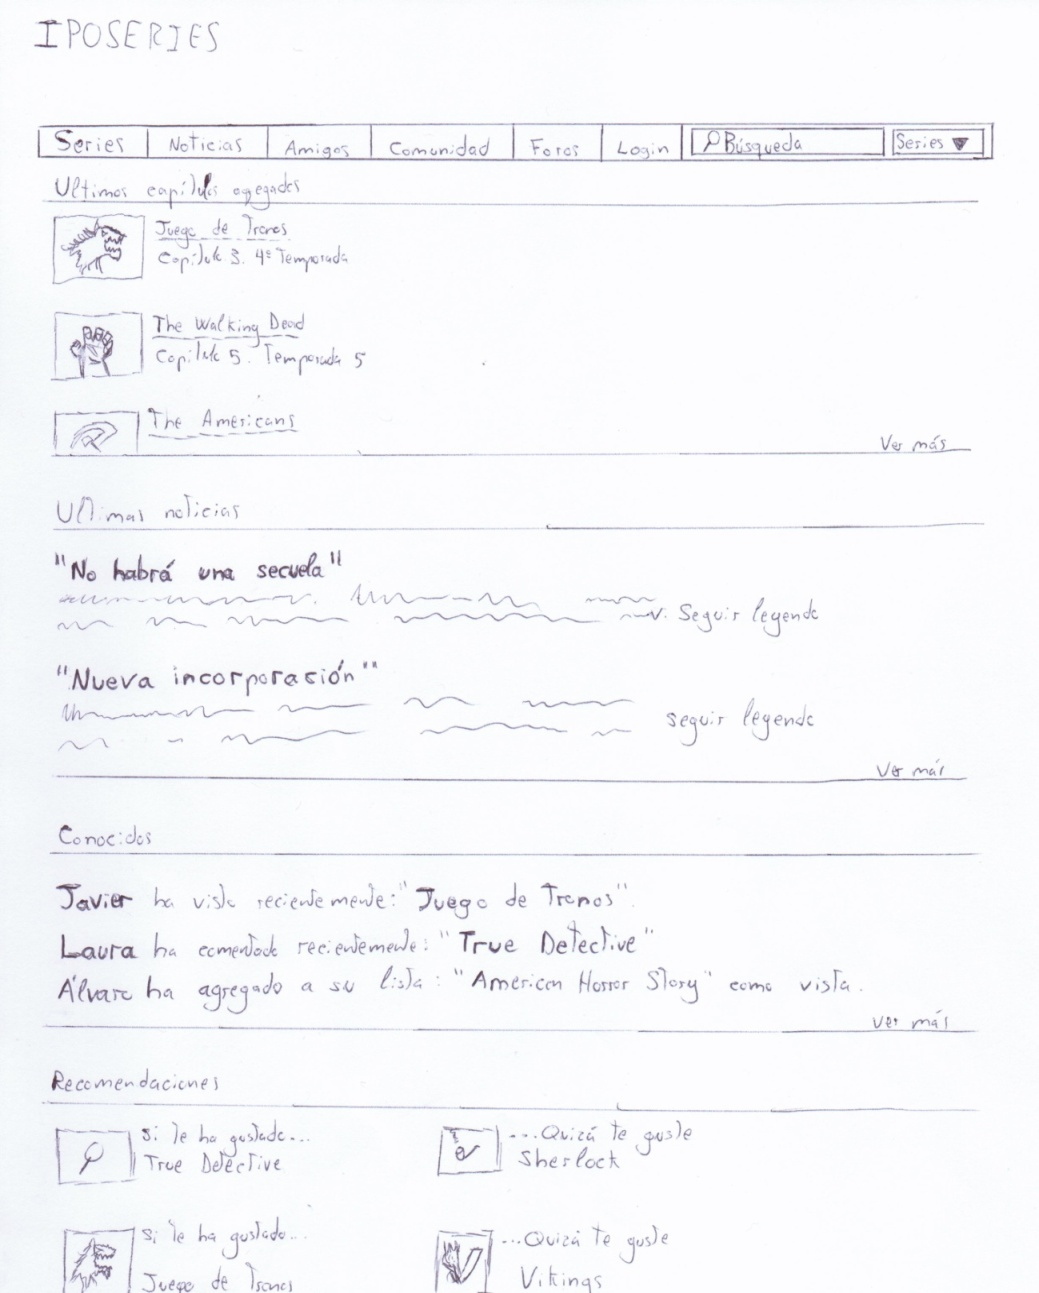 IPOSERIES
Series Noticias Amigos Comunidad Foros Login Búsqueda Series
Ultimos capítulos agregados
Juego de Tronos
Capítulo 3. 4ª Temporada
The Walking Dead
Capítulo 5. Temporada 5
The Americans
Ver más
Ultimas noticias
"No habrá una secuela"
Seguir leyendo
"Nueva incorporación""
seguir leyendo
Ver más
Conocidos
Javier ha visto recientemente: "Juego de Tronos".
Laura ha comentado recientemente: "True Detective"
Álvaro ha agregado a su lista: "American Horror Story" como vista.
ver más
Recomendaciones
Si le ha gustado... ...Quizá te guste
True Detective Sherlock
Si le ha gustado... ...Quizá te guste
Juego de Tronos Vikings